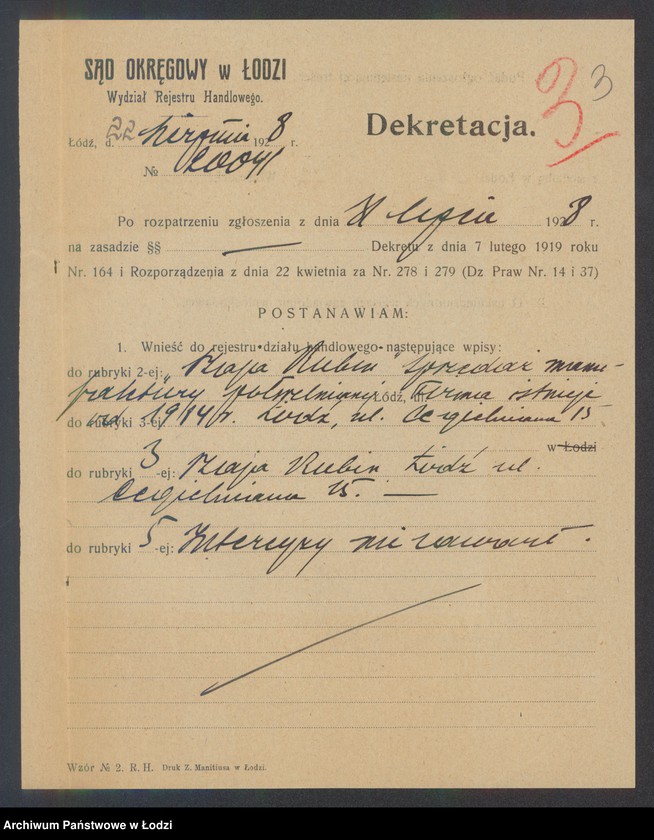 SĄD OKRĘGOWY w ŁODZI
Wydział Rejestru Handlowego.
3 3
Dekretacja.
Łódź, d. 22 sierpnia 1928 r.
№ 20041
Po rozpatrzeniu zgłoszenia z dnia lipca 1928 r.
na zasadzie §§ — Dekretu z dnia 7 lutego 1919 roku
Nr. 164 i Rozporządzenia z dnia 22 kwietnia za Nr. 278 i 279 (Dz Praw Nr. 14 i 37)
POSTANAWIAM:
1. Wnieść do rejestru działu handlowego następujące wpisy:
do rubryki 2-ej: „ Rubin" Sprzedaż manu-
faktury półwełnianej Łódź, Firma istnieje
do rubryki 3-ej: od 1914 r. Łódź, ul. Cegielniana 15
w Łodzi
do rubryki 3-ej: Rubin Łódź ul.
Cegielniana 15. —
do rubryki 5-ej: Intercyzy nie zawarł.
Wzór № 2. R. H. Druk Z. Manitiusa w Łodzi.
Archiwum Państwowe w Łodzi